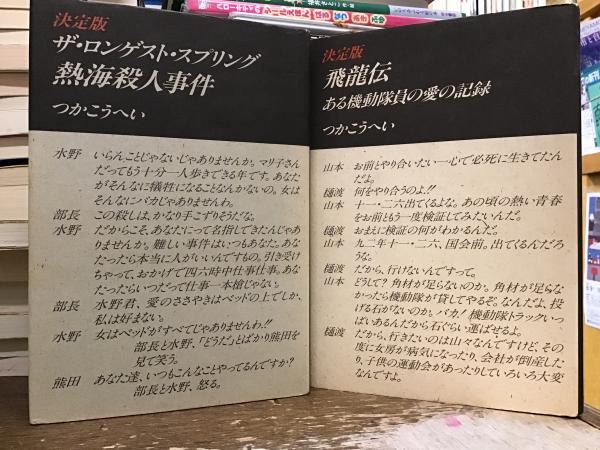 決定版
ザ・ロンゲスト・スプリング
熱海殺人事件
つかこうへい
水野 いらんことじゃないじゃありませんか。マリ子さん
だってもう十分一人歩きできる年です。あなた
がそんなに犠牲になることなんかないの。女は
そんなにバカじゃありませんわ。
部長 この殺しは、かなり手こずりそうだな。
水野 だからこそ、あなたにって名指してきたんじゃあ
りませんか。難しい事件はいつもあなた。あな
たったら本当に人がいいんですもの。引き受け
ちゃって、おかげで四六時中仕事仕事。あな
たったらいつだって仕事一本槍じゃない。
部長 水野君、愛のささやきはベッドの上でしか、
私は好まない。
水野 女はベッドがすべてじゃありませんわ!!
部長と水野、「どうだ」とばかり熊田を
見て笑う。
熊田 あなた達、いつもこんなことやってるんですか?
部長と水野、怒る。
決定版
飛龍伝
ある機動隊員の愛の記録
つかこうへい
山本 お前とやり合いたい一心で必死に生きてたん
だよ。
樋渡 何をやり合うのよ!!
山本 十一・二六出てくるよな。あの頃の熱い青春
をお前ともう一度検証してみたいんだ。
樋渡 おまえに検証の何がわかるんだ。
山本 九二年十一・二六、国会前。出てくるんだろ
うな。
樋渡 だから、行けないんですって。
山本 どうして? 角材が足らないのか。角材が足らな
かったら機動隊が貸してやるぞ。なんだよ、投
げる石がないのか。バカ! 機動隊トラックいっ
ぱいあるんだから石ぐらい運ばせるよ。
樋渡 だから、行きたいのは山々なんですけど、その
度に女房が病気になったり、会社が倒産した
り、子供の運動会があったりしていろいろ大変
なんですよ。